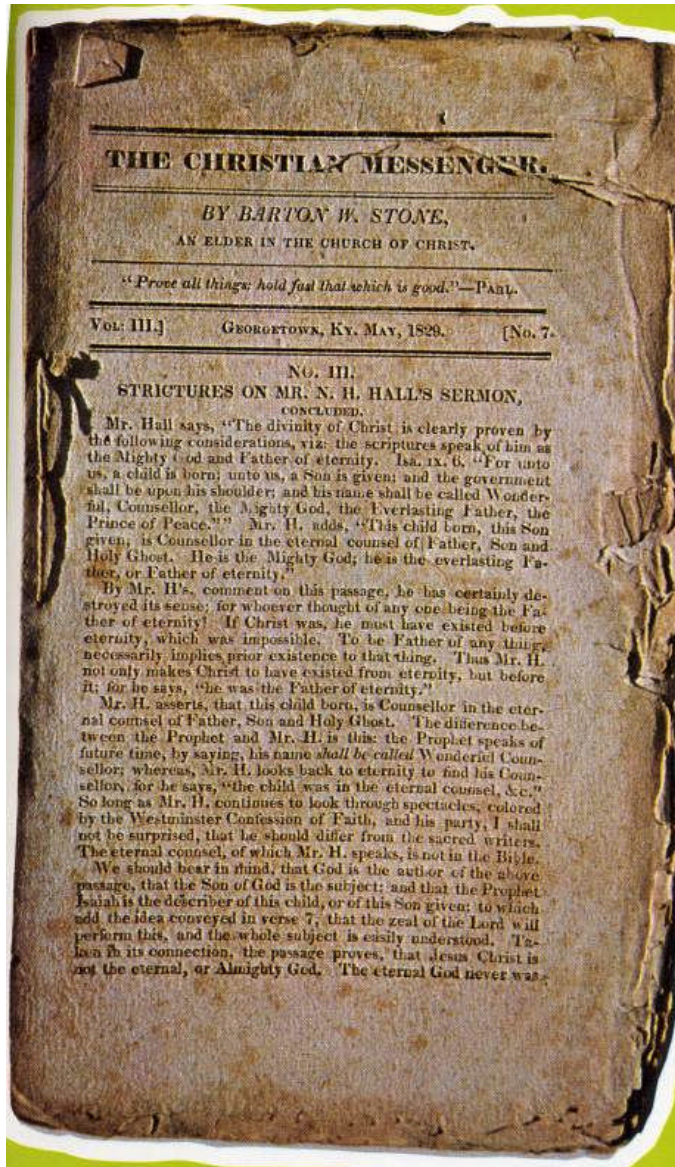 THE CHRISTIAN MESSENGER.
BY BARTON W. STONE,
AN ELDER IN THE CHURCH OF CHRIST.
"Prove all things: hold fast that which is good."—PAUL.
VOL: III.] GEORGETOWN, KY. MAY, 1829. [NO. 7.
NO. III.
STRICTURES ON MR. N. H. HALL'S SERMON,
CONCLUDED.
Mr. Hall says, "The divinity of Christ is clearly proven by
the following considerations, viz: the scriptures speak of him as
the Mighty God and Father of eternity. Isa. IX. 6. "For unto
us, a child is born; unto us, a Son is given; and the government
shall be upon his shoulder; and his name shall be called Wonder-
ful, Counsellor, the Mighty God, the Everlasting Father, the
Prince of Peace."" Mr. H. adds, "This child born, this Son
given, is Counsellor in the eternal counsel of Father, Son and
Holy Ghost. He is the Mighty God; he is the everlasting Fa-
ther, or Father of eternity."
By Mr. H's. comment on this passage, he has certainly de-
stroyed its sense; for whoever thought of any one being the Fa-
ther of eternity! If Christ was, he must have existed before
eternity, which was impossible. To be Father of any thing,
necessarily implies prior existence to that thing. Thus Mr. H.
not only makes Christ to have existed from eternity, but before
it; for he says, "he was the Father of eternity."
Mr. H. asserts, that this child born, is Counsellor in the eter-
nal counsel of Father, Son and Holy Ghost. The difference be-
tween the Prophet and Mr. H. is this: the Prophet speaks of
future time, by saying, his name shall be called Wonderful Coun-
sellor; whereas, Mr. H. looks back to eternity to find his Coun-
sellor, for he says, "the child was in the eternal counsel, &c."
So long as Mr. H. continues to look through spectacles, colored
by the Westminster Confession of Faith, and his party, I shall
not be surprised, that he should differ from the sacred writers.
The eternal counsel, of which Mr. H. speaks, is not in the Bible.
We should bear in mind, that God is the author of the above
passage, that the Son of God is the subject; and that the Prophet
Isaiah is the describer of this child, or of this Son given; to which
add the idea conveyed in verse 7, that the zeal of the Lord will
perform this, and the whole subject is easily understood. Ta-
ken in its connection, the passage proves, that Jesus Christ is
not the eternal, or Almighty God. The eternal God never was